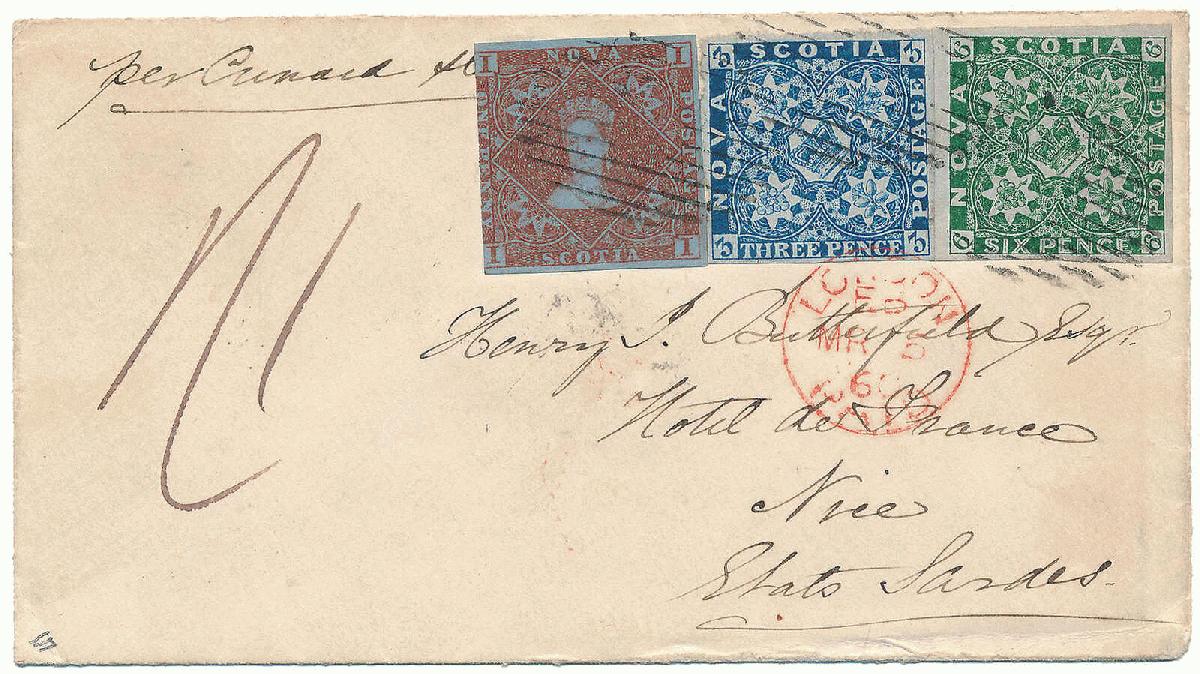 per Cunard
1 NOVA 1
ONE PENNY
POSTAGE
1 SCOTIA 1
3 SCOTIA 3
NOVA
POSTAGE
3 THREE PENCE 3
6 SCOTIA 6
NOVA
POSTAGE
6 SIX PENCE 6
LONDON
MR 5
60
PAID
Henry I. Butterfield Esqr.
Hotel de France
Nice
Etats Sardes